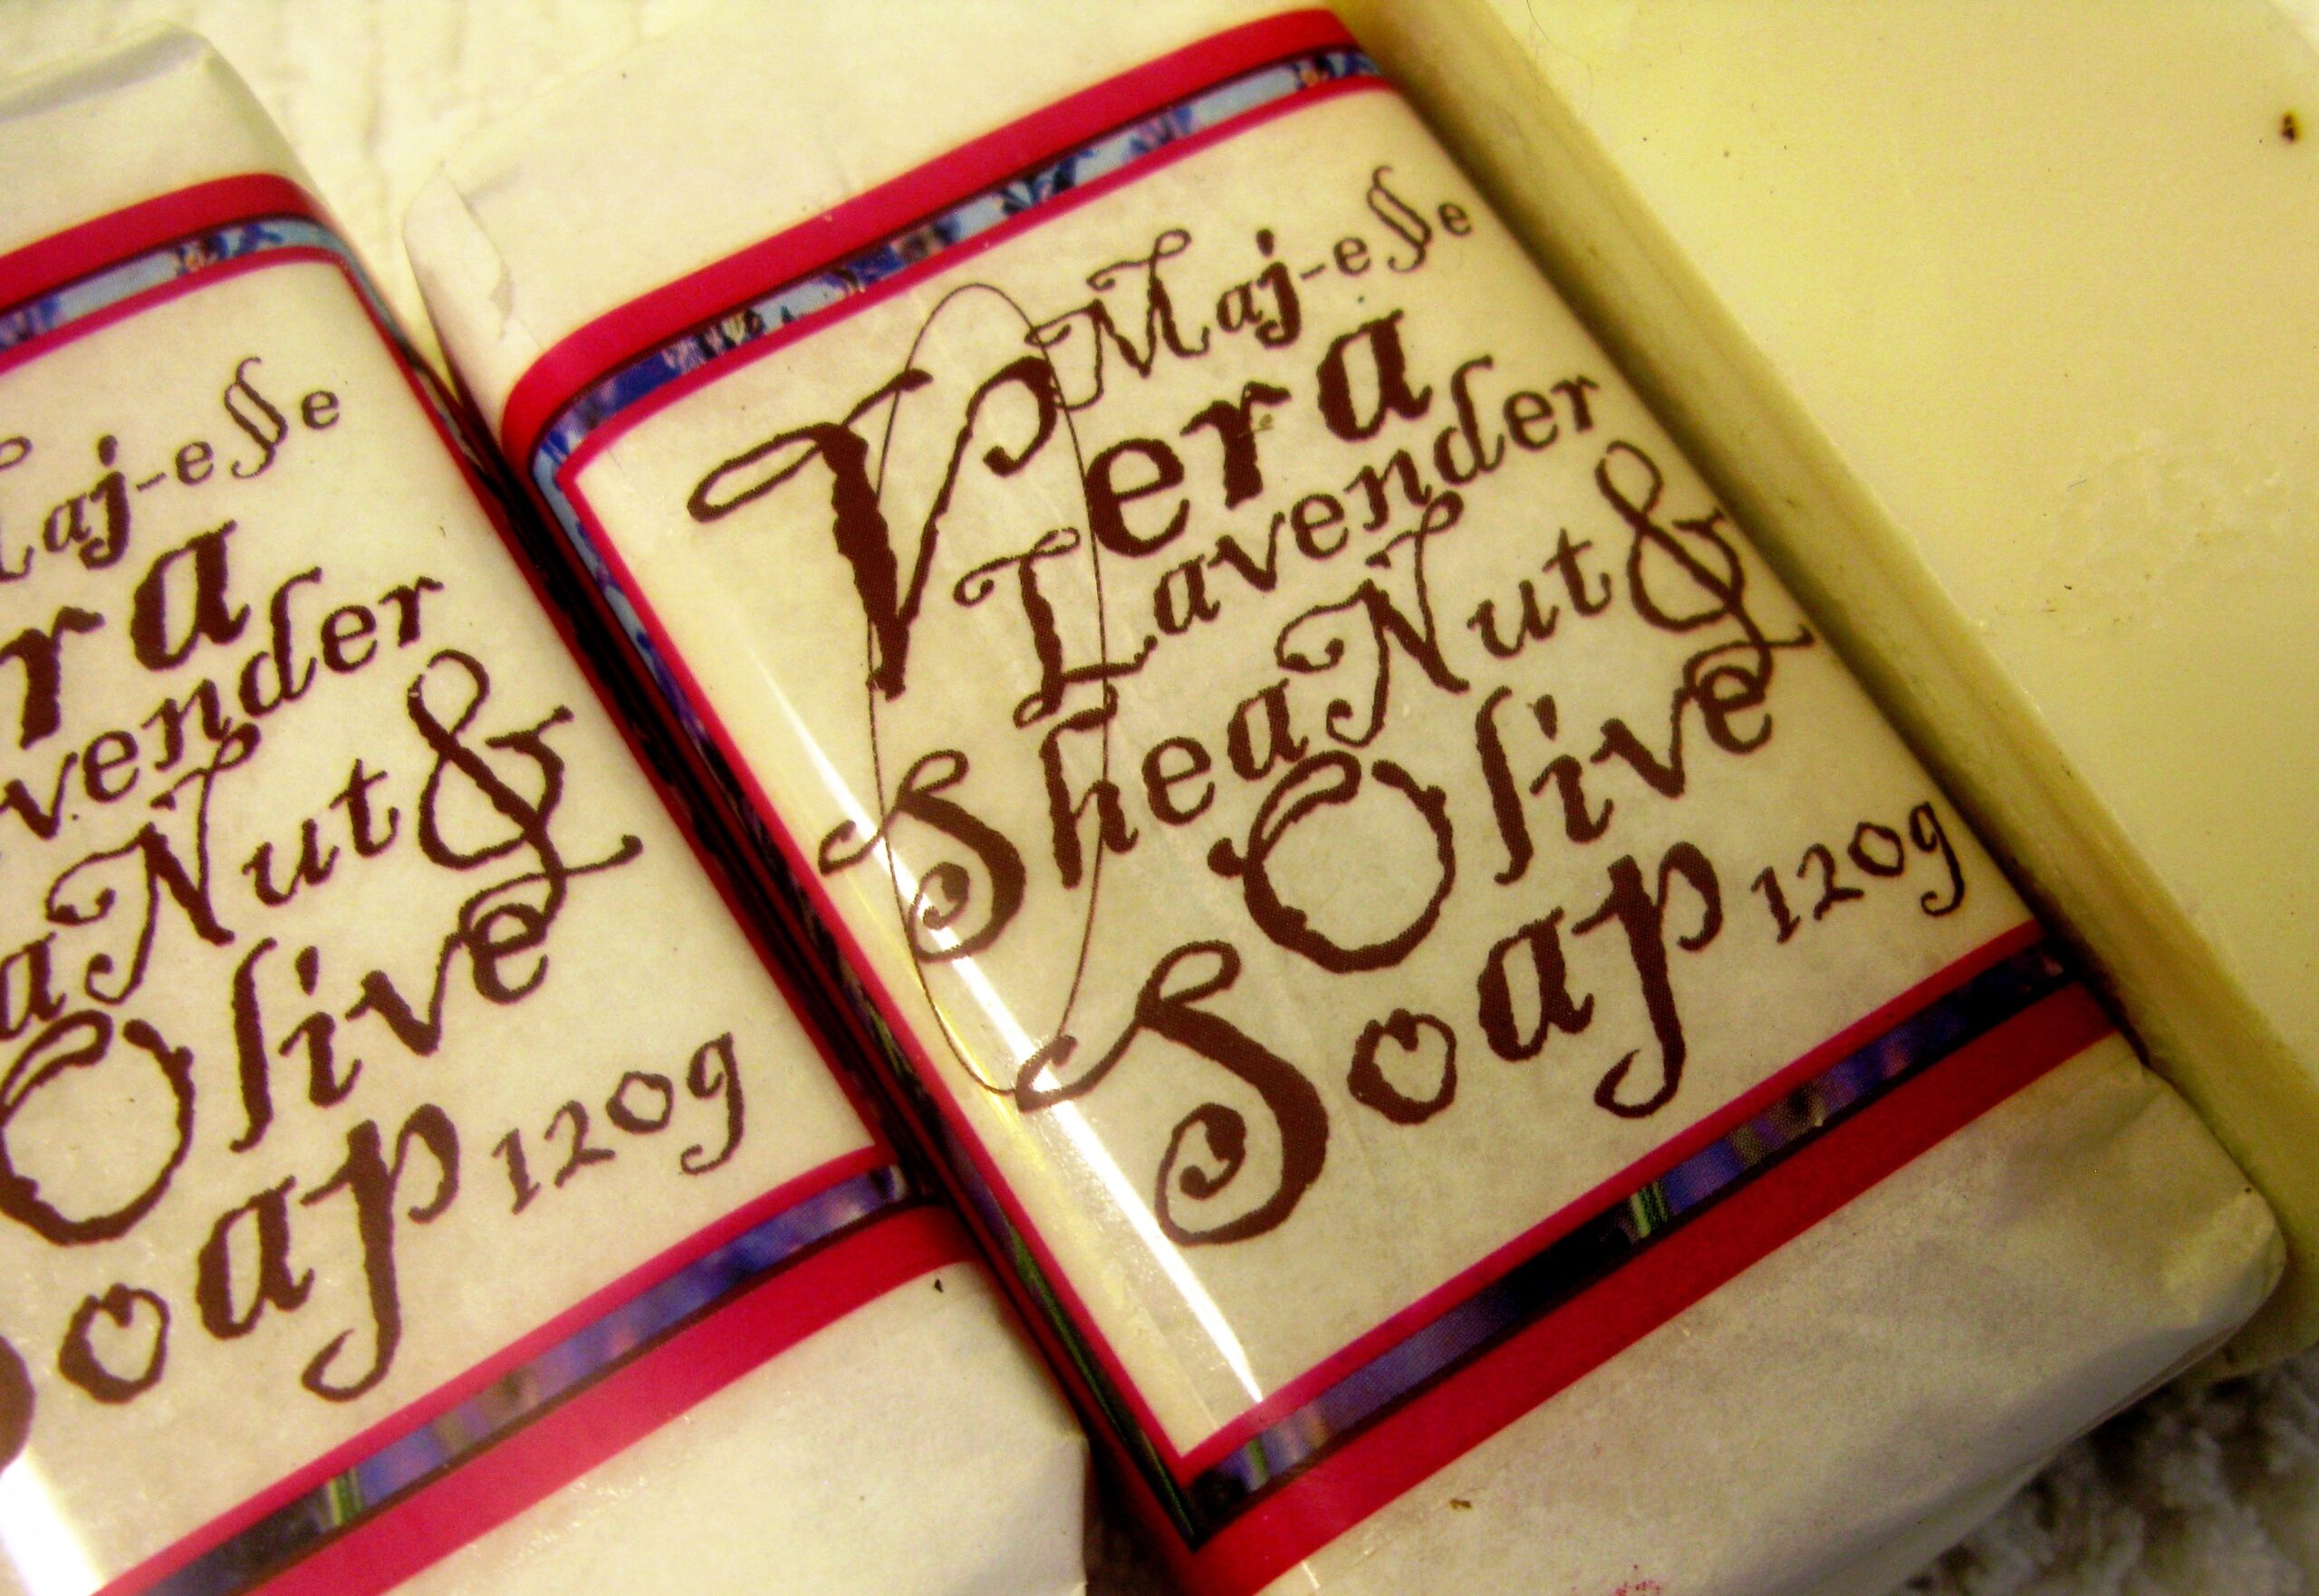 Maj-esse
Vera
Lavender
Shea Nut &
Olive
Soap 120g
Maj-esse
era
Lavender
Shea Nut &
Olive
Soap 120g